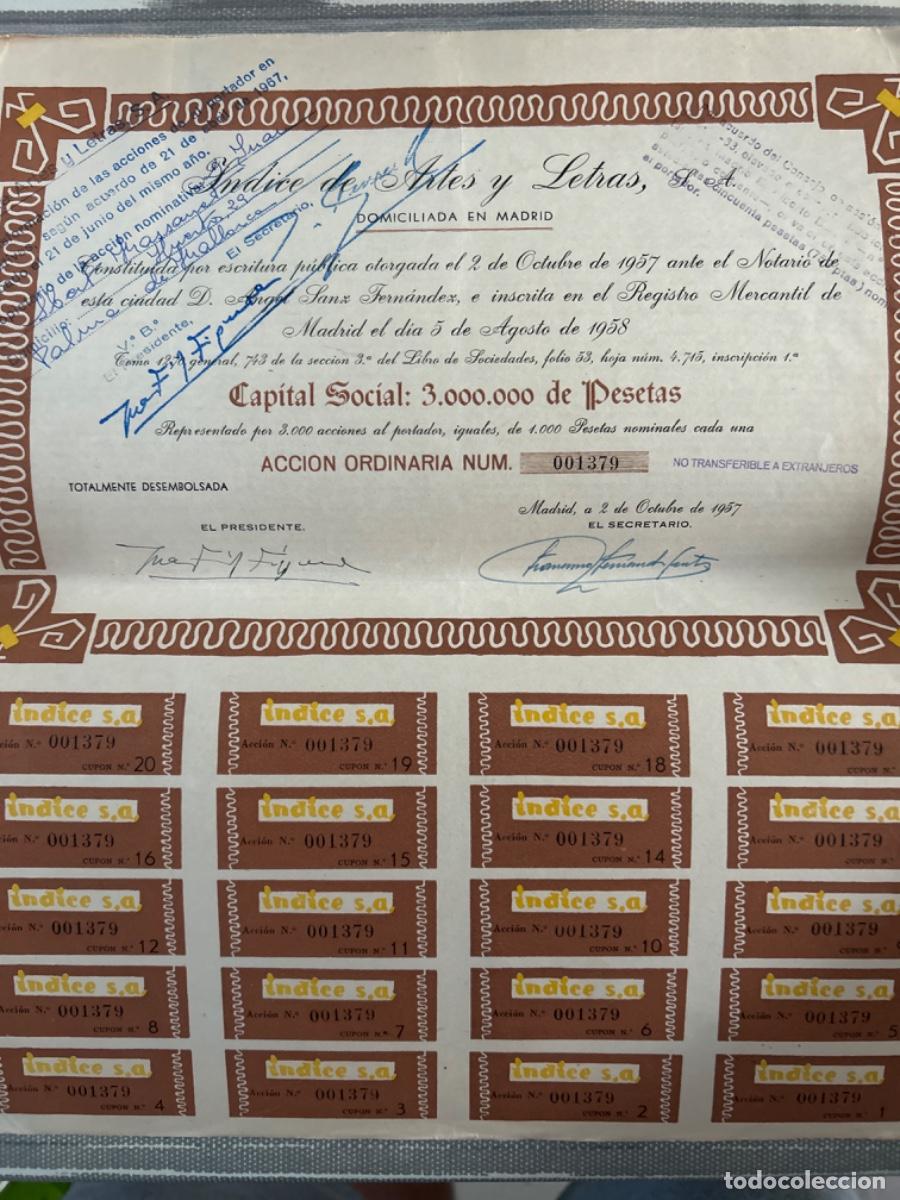 Artes y Letras, S. A.
de las acciones de portador en
según acuerdo de 21 de de 1967,
21 de junio del mismo año.
de acción nominativa
Palma de Mallorca
El Secretario,
V.º B.º
El Presidente,
acuerdo del Consejo
cincuenta pesetas
Indice de Artes y Letras, S. A.
DOMICILIADA EN MADRID
Constituida por escritura pública otorgada el 2 de Octubre de 1957 ante el Notario de
esta ciudad D. Angel Sanz Fernández, e inscrita en el Registro Mercantil de
Madrid el dia 5 de Agosto de 1958
Tomo general, 743 de la seccion 3.ª del Libro de Sociedades, folio 53, hoja núm. 4.715, inscripción 1.ª
Capital Social: 3.000.000 de Pesetas
Representado por 3.000 acciones al portador, iguales, de 1.000 Pesetas nominales cada una
ACCION ORDINARIA NUM. 001379 NO TRANSFERIBLE A EXTRANJEROS
TOTALMENTE DESEMBOLSADA
Madrid, a 2 de Octubre de 1957
EL PRESIDENTE. EL SECRETARIO.
indice s,a indice s,a indice s,a indice s,a
001379 Acción N.º 001379 Acción N.º 001379 Acción N.º 001379
CUPON N.º 20 CUPON N.º 19 CUPON N.º 18
indice s,a indice s,a indice s,a indice s,a
001379 Acción N.º 001379 Acción N.º 001379 Acción N.º 001379
CUPON N.º 16 CUPON N.º 15 CUPON N.º 14
indice s,a indice s,a indice s,a indice s,a
001379 Acción N.º 001379 Acción N.º 001379 Acción N.º 001379
CUPON N.º 12 CUPON N.º 11 CUPON N.º 10
indice s,a indice s,a indice s,a indice s,a
Acción N.º 001379 Acción N.º 001379 Acción N.º 001379 Acción N.º 001379
CUPON N.º 8 CUPON N.º 7 CUPON N.º 6 CUPON N.º 5
indice s,a indice s,a indice s,a indice s,a
Acción N.º 001379 Acción N.º 001379 Acción N.º 001379 Acción N.º 001379
CUPON N.º 4 CUPON N.º 3 CUPON N.º 2 CUPON N.º 1
todocoleccion